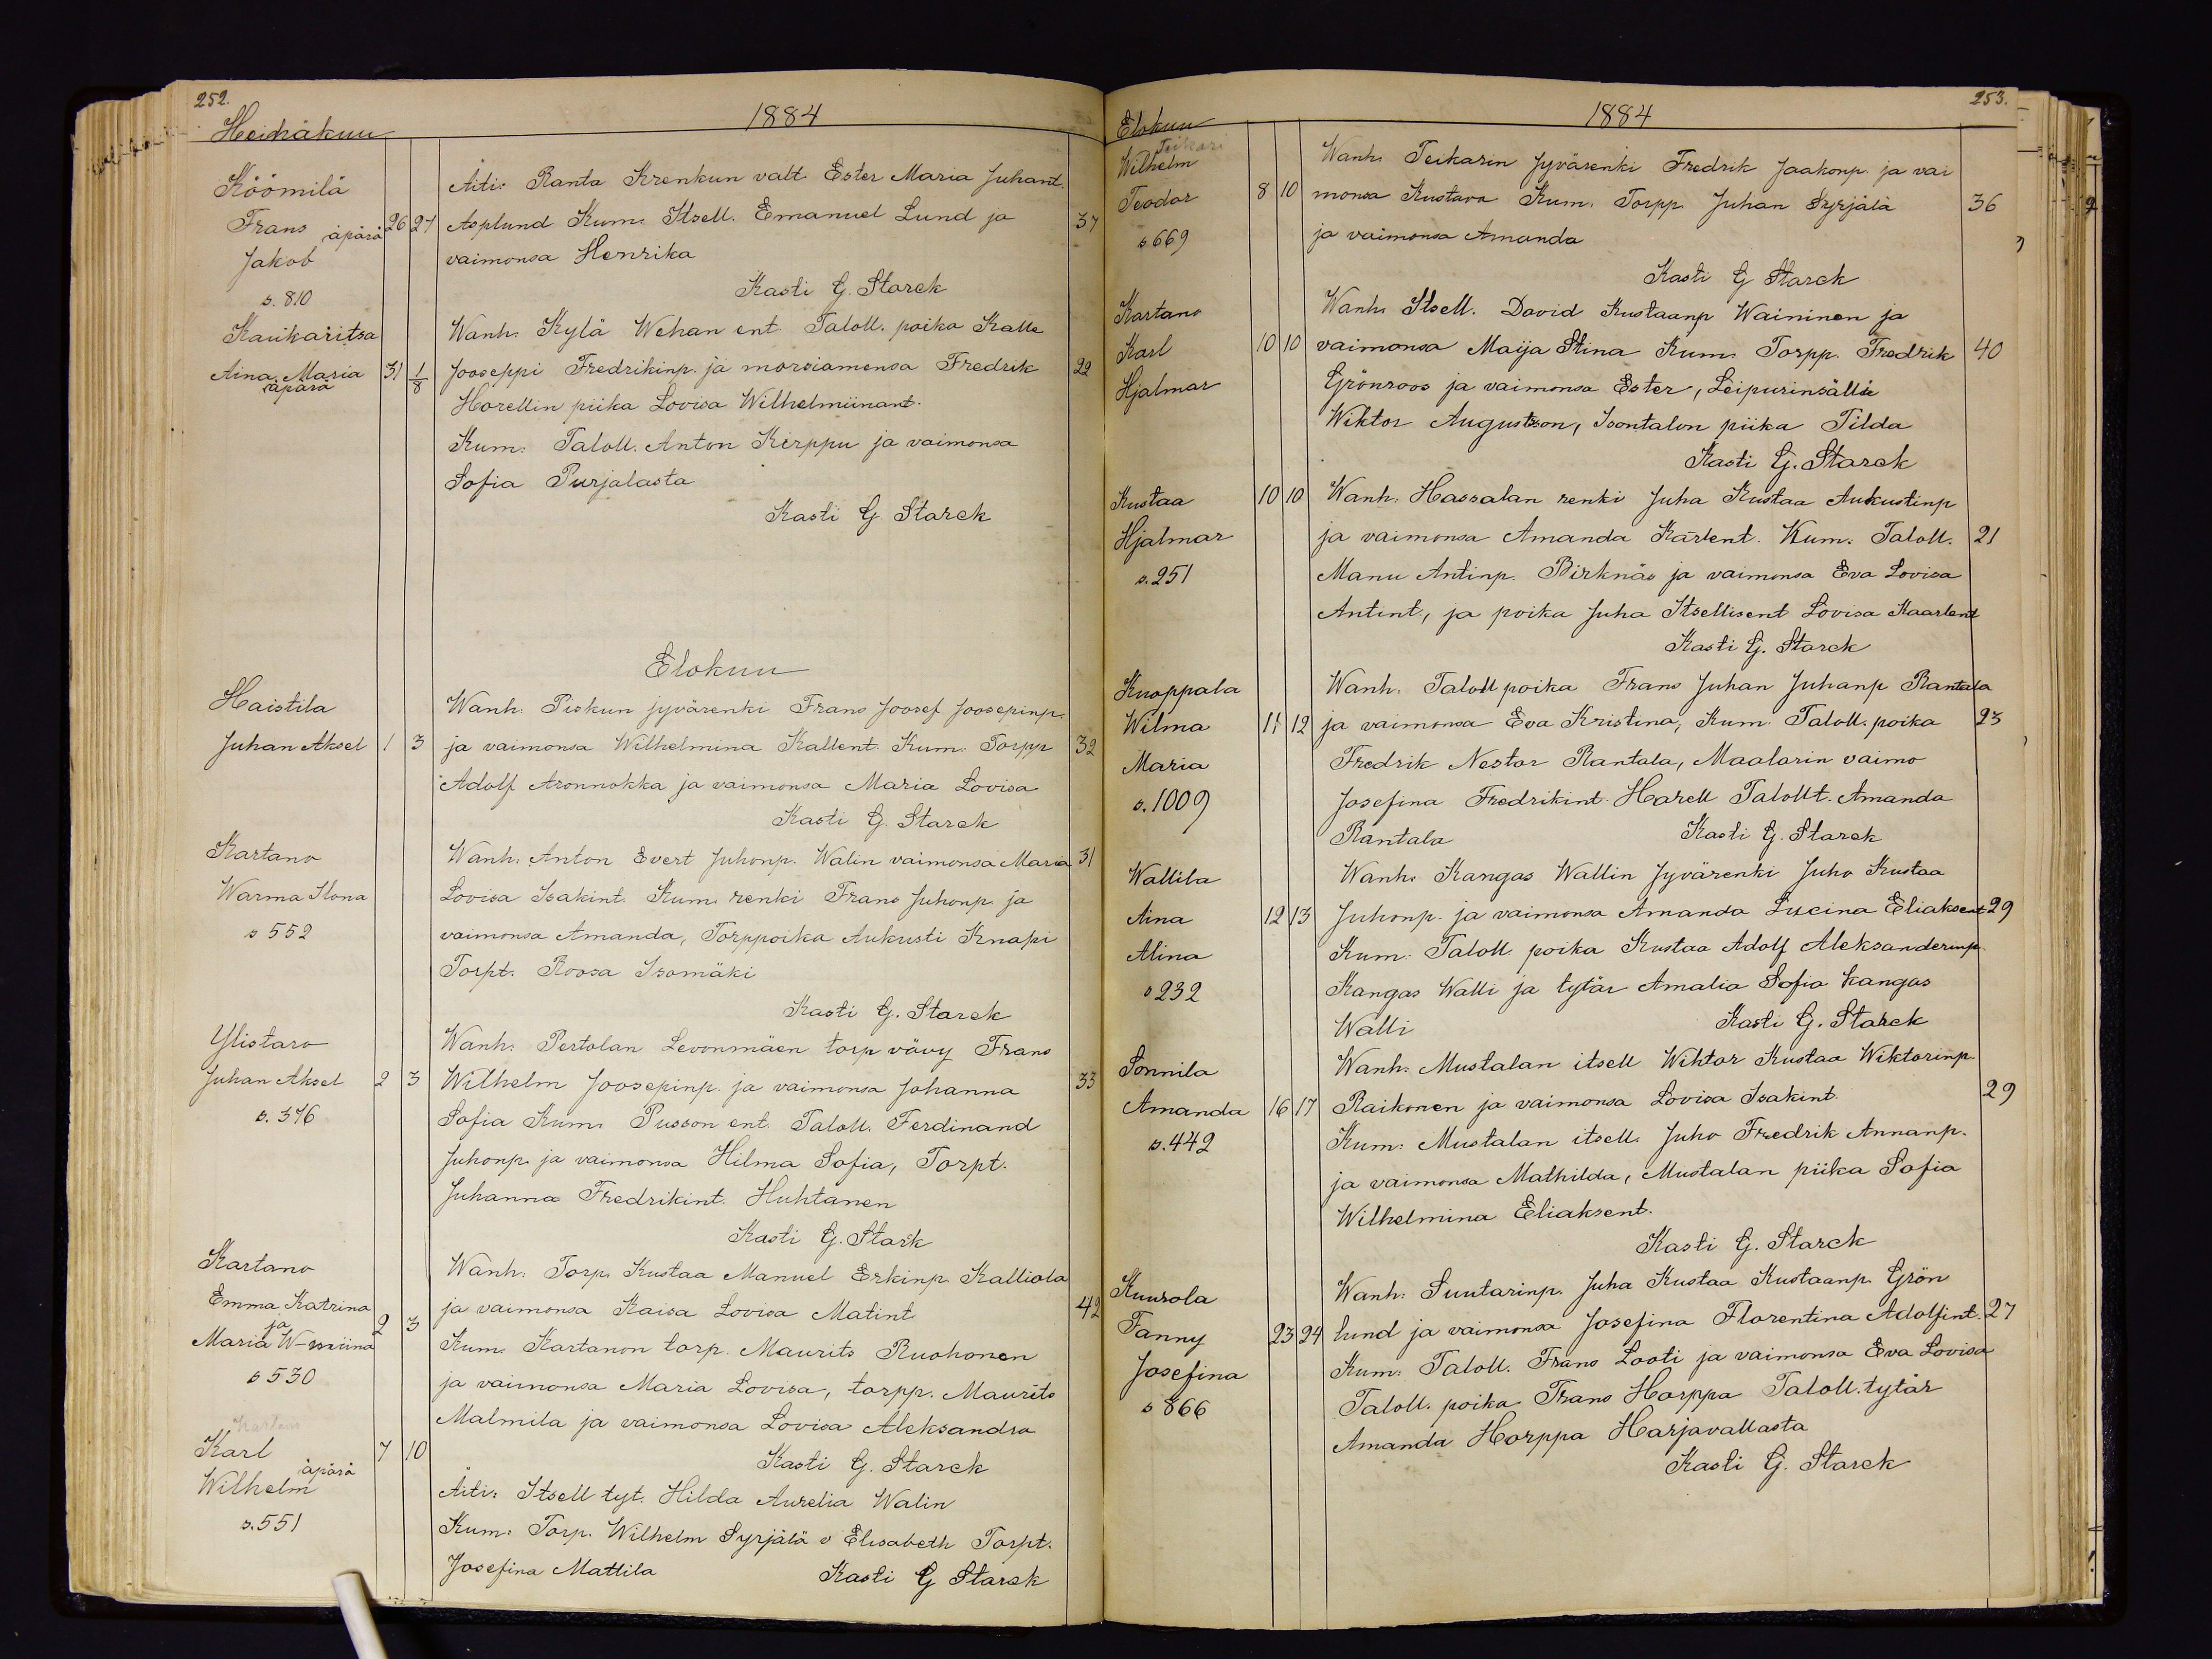 252.
Heinäkuu
1884
Köömilä
Äiti: Ranta Krenkun valt. Ester Maria Juhant.
Frans äpärä 26 27 Asplund Kum. Itsell. Emanuel Lund ja 37
Jakob vaimonsa Henrika
s. 810 Kasti G. Starck
Kaukaritsa Wanh. Kylä Wehan ent. Taloll. poika Kalle
Aina Maria 31 1/8 Jooseppi Fredrikinp. ja morsiamensa Fredrik 22
äpärä
Horellin piika Lovisa Wilhelmiinant.
Kum. Taloll. Anton Kirppu ja vaimonsa
Sofia Purjalasta
Kasti G Starck
Elokuu
Haistila Wanh. Piskun jyvärenki Frans Joosef Joosepinp.
Juhan Aksel 1 3 ja vaimonsa Wilhelmina Kallent. Kum. Torpp 32
Adolf Aronnokka ja vaimonsa Maria Lovisa
Kasti G. Starck
Kartano Wanh. Anton Evert Juhonp. Walin vaimonsa Maria 31
Warma Ilona Lovisa Isakint. Kum. renki Frans Juhonp. ja
s 552 vaimonsa Amanda, Torppoika Aukusti Knapi
Torpt. Roosa Isomäki
Kasti G. Starck
Ylistaro Wanh. Pertolan Levonmäen torp vävy Frans
Juhan Aksel 2 3 Wilhelm Joosepinp. ja vaimonsa Johanna 33
s. 376 Sofia Kum. Pusson ent. Taloll. Ferdinand
Juhonp. ja vaimonsa Hilma Sofia, Torpt.
Juhanna Fredrikint. Huhtanen
Kasti G. Stark
Kartano Wanh. Torp. Kustaa Manuel Erkinp. Kalliola
Emma Katrina 2 3 ja vaimonsa Kaisa Lovisa Matint 42
ja
Maria W-miina Kum. Kartanon torp. Maurits Ruohonen
s 530 ja vaimonsa Maria Lovisa, torpp. Maurits
Kartano Malmila ja vaimonsa Lovisa Aleksandra
Karl 7 10 Kasti G. Starck
äpärä
Wilhelm Äiti: Itsell tyt. Hilda Aurelia Walin
s. 551 Kum: Torp. Wilhelm Syrjälä v Elisabeth Torpt.
Josefina Mattila Kasti G Starck
253.
Elokuu
1884
Teikari
Wilhelm Wanh. Teikarin Jyvärenki Fredrik Jaakonp. ja vai
Teodor 8 10 monsa Kustava Kum. Torpp. Juhan Syrjälä 36
s 669 ja vaimonsa Amanda
Kasti G Starck
Kartano Wanh. Itsell. David Kustaanp Waininen ja
Karl 10 10 vaimonsa Maija Stina Kum. Torpp. Fredrik 40
Hjalmar Grönroos ja vaimonsa Ester, Leipurinsälli
Wiktor Augustson, Isontalon piika Tilda
Kasti G. Starck
Kustaa 10 10 Wanh. Hassalan renki Juha Kustaa Aukustinp
Hjalmar ja vaimonsa Amanda Karlent. Kum. Taloll. 21
s. 251 Manu Antinp. Birknäs ja vaimonsa Eva Lovisa
Antint., ja poika Juha Itsellisent Lovisa Kaarlent
Kasti G. Starck
Knoppala Wanh. Taloll poika Frans Juhan Juhanp Rantala
Wilma 11 12 ja vaimonsa Eva Kristina, Kum. Taloll. poika 23
Maria Fredrik Nestor Rantala, Maalarin vaimo
s. 1009 Josefina Fredrikint. Harell Talollt. Amanda
Rantala Kasti G. Starck
Wallila Wanh. Kangas Wallin Jyvärenki Juho Kustaa
Aina 12 13 Juhonp. ja vaimonsa Amanda Lucina Eliaksent 29
Alina Kum. Taloll. poika Kustaa Adolf Aleksanderinp.
s 232 Kangas Walli ja tytär Amalia Sofia Kangas
Walli Kasti G. Starck
Sonnila Wanh. Mustalan itsell Wiktor Kustaa Wiktorinp
Amanda 16 17 Raikonen ja vaimonsa Lovisa Isakint. 29
s. 442 Kum: Mustalan itsell. Juho Fredrik Annanp.
ja vaimonsa Mathilda, Mustalan piika Sofia
Wilhelmina Eliaksent.
Kasti G. Starck
Kuurola Wanh: Suutarinp. Juha Kustaa Kustaanp. Grön
Fanny 23 24 lund ja vaimonsa Josefina Florentina Adolfint. 27
Josefina Kum. Taloll. Frans Looti ja vaimonsa Eva Lovisa
s 866 Taloll. poika Frans Horppa Taloll. tytär
Amanda Horppa Harjavallasta
Kasti G. Starck